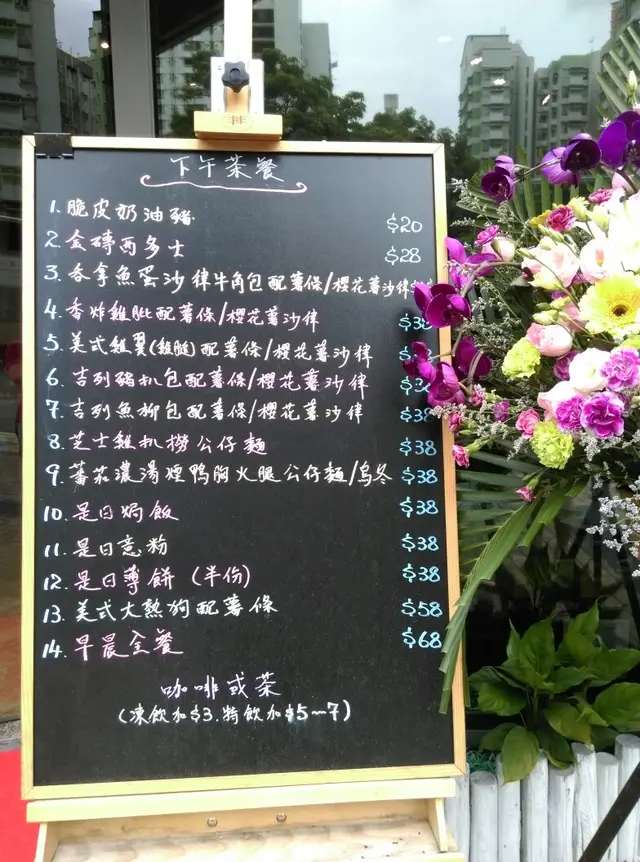 下午茶餐
1. 脆皮奶油豬 $20
2. 金磚西多士 $28
3. 吞拿魚蛋沙律牛角包配薯條/櫻花薯沙律
4. 香炸雞髀配薯條/櫻花薯沙律 $38
5. 美式雞翼(雞腿)配薯條/櫻花薯沙律
6. 吉列豬扒包配薯條/櫻花薯沙律
7. 吉列魚柳包配薯條/櫻花薯沙律 $38
8. 芝士雞扒撈公仔麵 $38
9. 蕃茄濃湯煙鴨胸火腿公仔麵/烏冬 $38
10. 是日焗飯 $38
11. 是日意粉 $38
12. 是日薄餅 (半份) $38
13. 美式大熱狗配薯條 $58
14. 早晨全餐 $68
咖啡或茶
(凍飲加$3.特飲加$5~7)